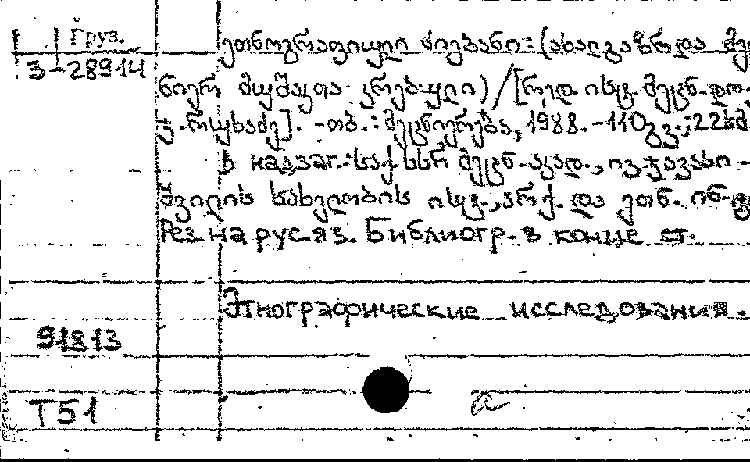 Груз.
3-28914
ეთნოგრაფიული ძიებანი: (ახალგაზრდა მეც
ნიერ მუშაკთა კრებული) / [რედ. ისტ. მეცნ. დო.
ჯ. რუხაძე]. - თბ. : მეცნიერება, 1988. - 110 გვ.; 22 სმ
В надзаг.: საქ სსრ მეცნ. აკად., ივ. ჯავახი-
შვილის სახელობის ისტ., არქ. და ეთნ. ინ-ტ
Рез. на рус. яз. Библиогр. в конце ст.
Этнографические исследования.
91813
Т51